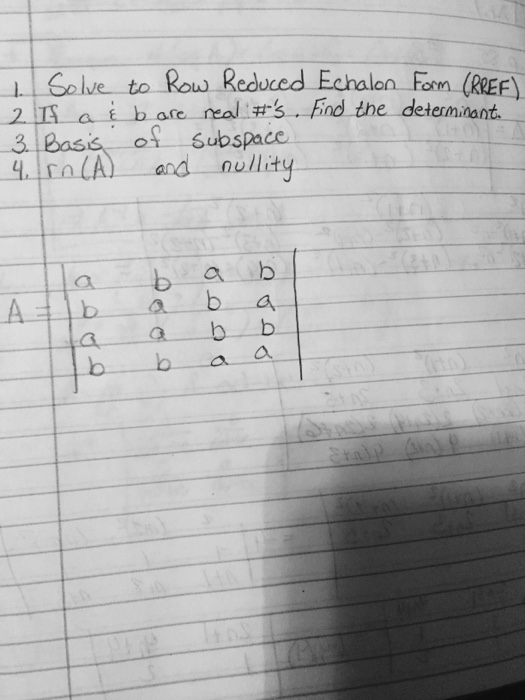 1. Solve to Row Reduced Echalon Form (RREF)
2 If a & b are real #'s. Find the determinant.
3. Basis of subspace
4. rn(A) and nullity
a b a b
A = b a b a
a a b b
b b a a